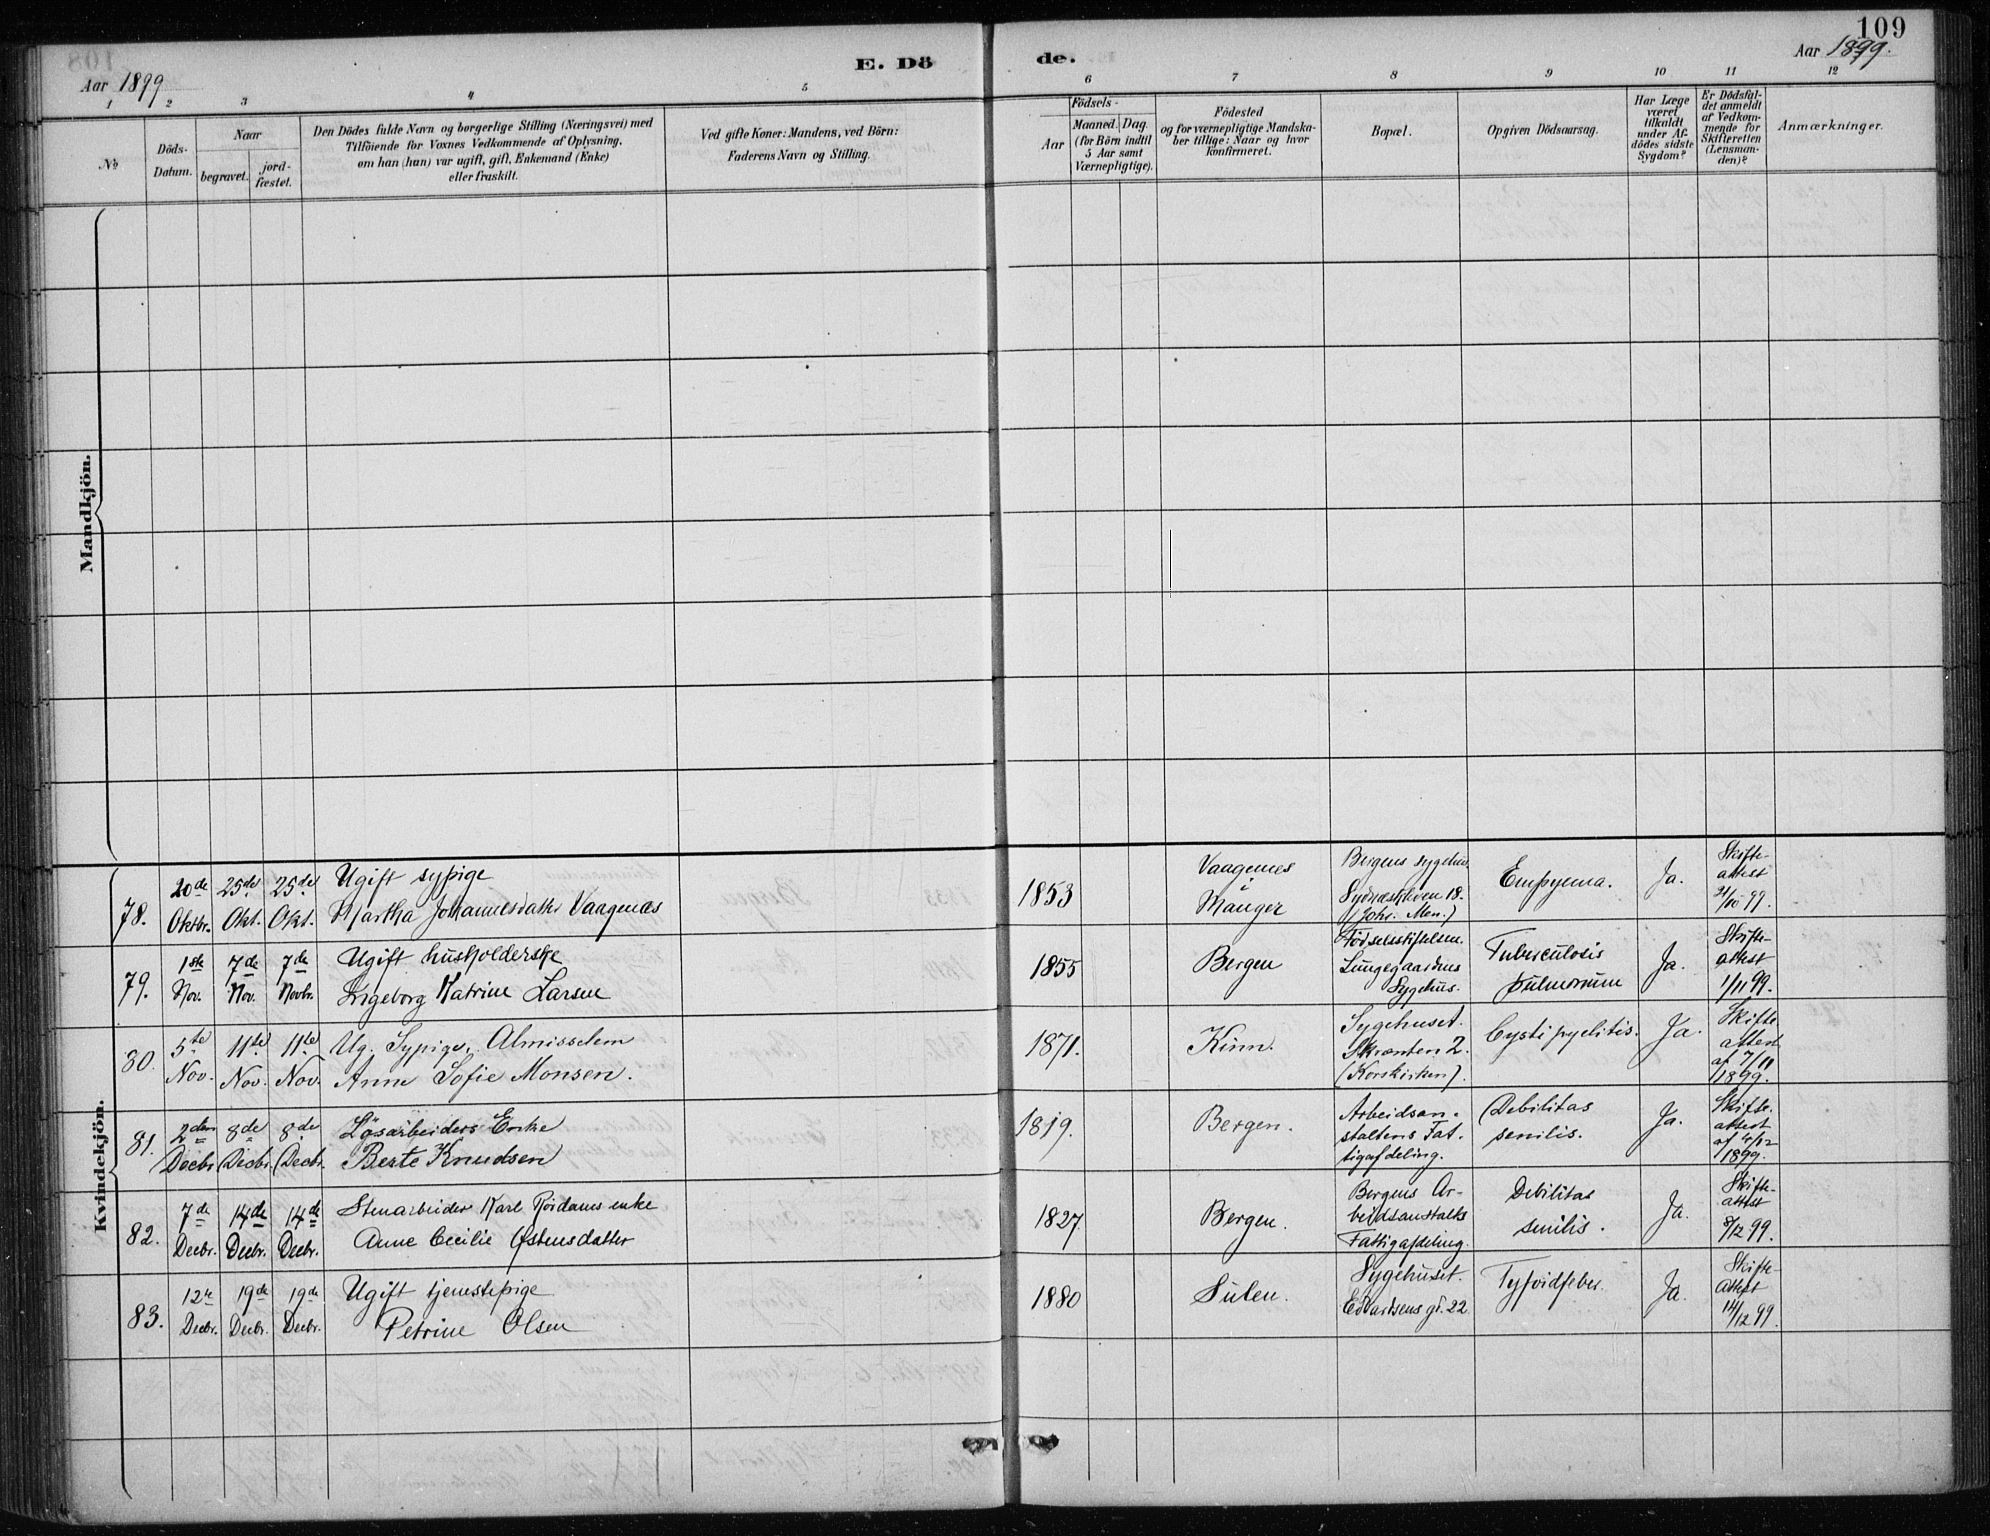 109
Aar 1899
E. Dö
de.
Aar 1899.
1 2 3 4 5 6 7 8 9 10 11 12
No
Döds-
Datum.
Naar
begravet.
jord-
fæstet.
Den Dödes fulde Navn og borgerlige Stilling (Næringsvei) med
Tilföiende for Voxnes Vedkommende af Oplysning,
om han (hun) var ugift, gift, Enkemand (Enke)
eller fraskilt.
Ved gifte Koner: Mandens, ved Börn:
Faderens Navn og Stilling.
Födsels-
Aar
Maaned. Dag.
(for Börn indtil
5 Aar samt
Værnepligtige).
Födested
og for værnepligtige Mandska-
ber tillige: Naar og hvor
konfirmeret.
Bopæl.
Opgiven Dödsaarsag.
Har Læge
været
tilkaldt
under Af-
dödes sidste
Sygdom?
Er Dödsfal-
det anmeldt
af Vedkom-
mende for
Skifteretten
(Lensman-
den)?
Anmærkninger.
Mandkjön.
Kvindekjön.
78.
20de
Oktbr.
25de
Okt.
25de
Okt.
Ugift sypige
Martha Johannesdatter Vaagenæs
1853
Vaagenes
Manger
Bergens sygehus,
Sydneskleven 18.
(Johs. Men.)
Empyema.
Ja.
Skifte-
attest
21/10 99.
79.
1ste
Nov.
7de
Nov.
7de
Novbr.
Ugift husholderske
Ingeborg Katrine Larsen
1855
Bergen
Födselsstiftelsen.
Lungegaardens
Sygehus.
Tuberculosis
pulmonum
Ja.
Skifte-
attest
1/11 99.
80.
5te
Nov.
11te
Nov.
11te
Nov.
Ug. Sypige, Almisselem
Anne Sofie Monsen.
1871.
Kinn.
Sygehuset.
Skrænten 2.
(Korskirken).
Cystipyelitis.
Ja.
Skifte
attest
af 7/11
1899.
81.
2den
Decbr
8de
Decbr.
8de
Decbr.
Lösarbeiders Enke
Berte Knudsen
1819.
Bergen.
Arbeidsan-
staltens Fat-
tigafdeling.
Debilitas
senilis.
Ja.
Skifte-
attest
af 4/12
1899.
82.
7de
Decbr.
14de
Decbr.
14de
Decbr.
Stenarbeider Karl Rördams enke
Anne Cecilie Østensdatter
1827.
Bergen.
Bergens Ar-
beidsanstalts
Fattigafdeling.
Debilitas
senilis.
Ja.
Skifte-
attest
8/12 99.
83.
12te
Decbr.
19de
Decbr.
19de
Decbr.
Ugift tjenestepige
Petrine Olsen
1880
Sulen.
Sygehuset.
Edvardsens gt. 22
Tyfoidfeber.
Ja.
Skifte-
attest
14/12 99.